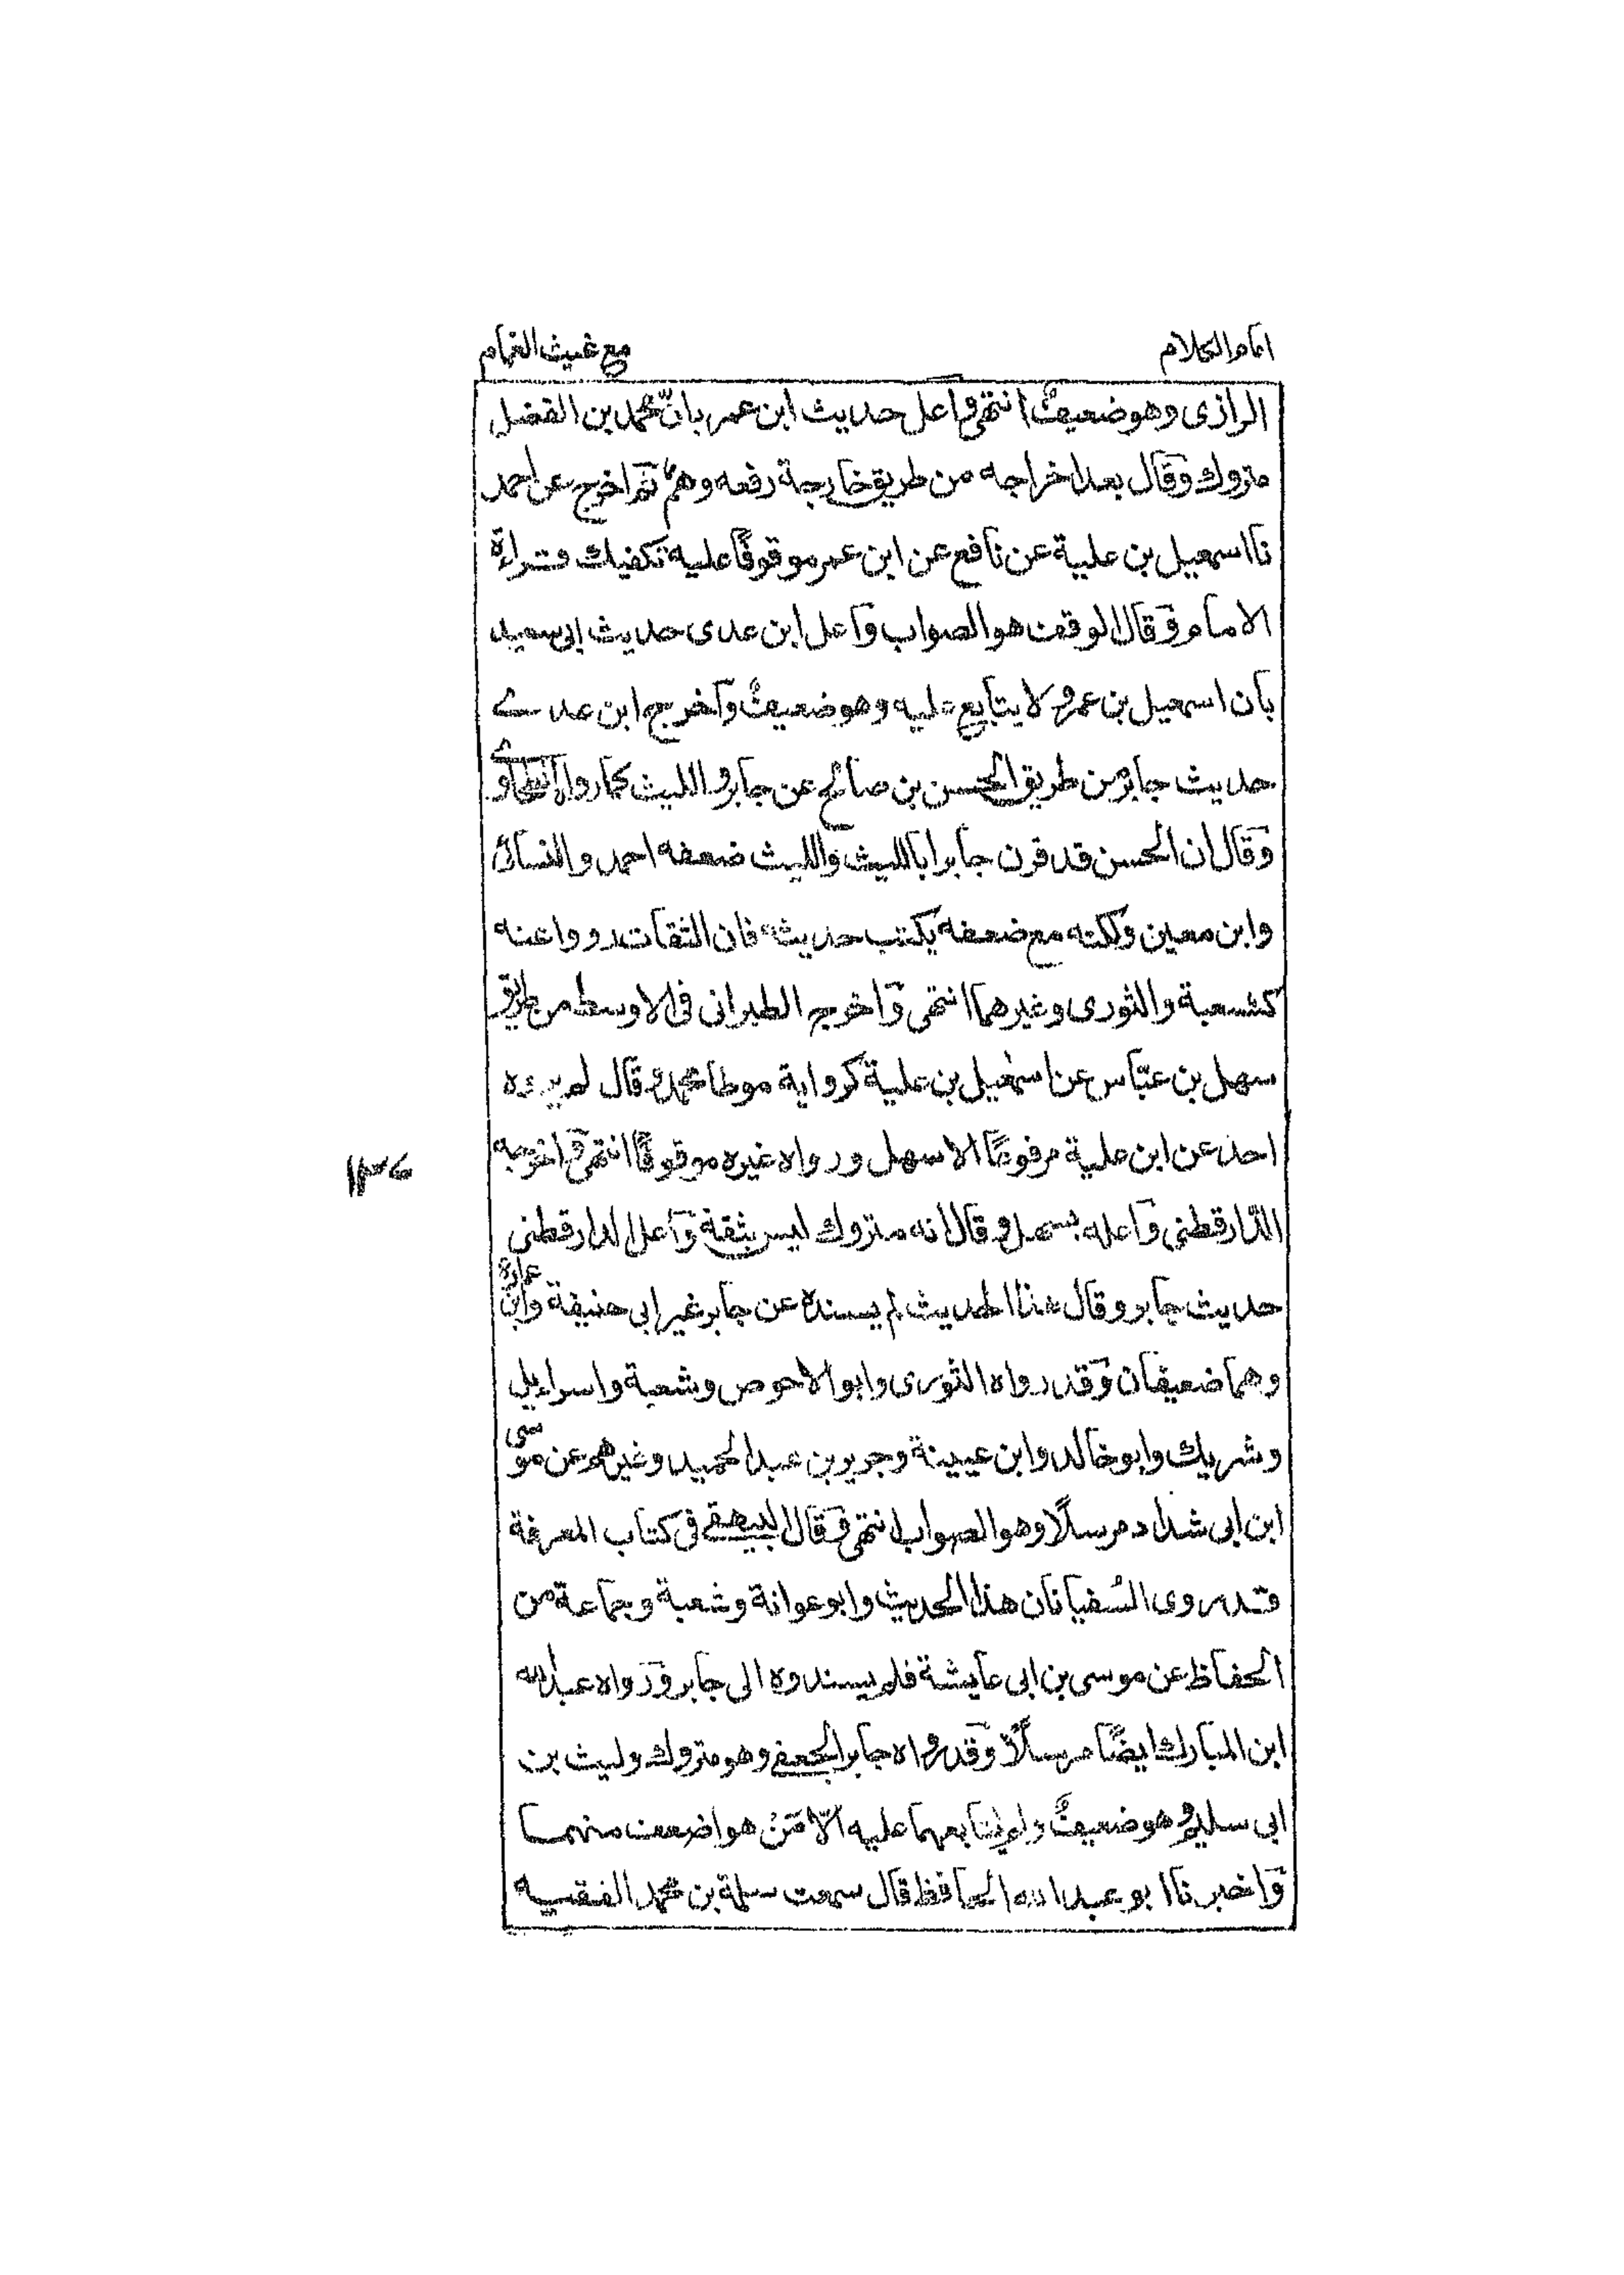 امام الكلام
مع غيث الغمام
الرازى وهو ضعيفٌ انتهى واعل حديث ابن عمر بانّ محمد بن الفضل
متروك وقال بعد اخراجه من طريق خارجة رفعه وهمٌ ثم اخرج عن احمد
نا اسمعيل بن علية عن نافع عن ابن عمر موقوفًا عليه تكفيك قراءة
الامام وقال الوقف هو الصواب واعل ابن عدى حديث ابى سعيد
بان اسمعيل بن عمرو لا يتابع عليه وهو ضعيفٌ واخرج ابن عدے
حديث جابر من طريق الحسن بن صالح عن جابر والليث كما رواه الطحاوے
وقال ان الحسن قد قرن جابرا بالليث والليث ضعفه احمد والنسائى
وابن معين ولكنه مع ضعفه يكتب حديثه فان الثقات رووا عنه
كشعبة والثورى وغيرهما انتهى واخرجه الطبرانى فى الاوسط من طريق
سهل بن عبّاس عن اسمعيل بن علية كرواية موطا محمد وقال لم يرفعه
احد عن ابن علية مرفوعًا الا سهل ورواه غيره موقوفًا انتهى واخرجه
١٣٧
الدّارقطنى واعله بسهل وقال انه متروك ليس بثقة واعل الدارقطنى
حديث جابر وقال هذا الحديث لم يسنده عن جابر غير ابى حنيفة وابن عمارة
وهما ضعيفان وقد رواه الثورى وابو الاحوص وشعبة واسراءيل
وشريك وابو خالد وابن عيينة وجرير بن عبد الحميد وغيرهم عن موسى
ابن ابى شداد مرسلًا وهو الصواب انتهى وقال البيهقے فى كتاب المعرفة
قد روى السُفيانان هذا الحديث وابو عوانة وشعبة وجماعة من
الحفاظ عن موسى بن ابى عايشة فلم يسندوه الى جابر ورواه عبد الله
ابن المبارك ايضًا مرسلًا وقد رواه جابر الجعفے وهو متروك وليث بن
ابى سليم وهو ضعيفٌ ولم يتابعهما عليه الّا مَنْ هو اضعف منهما
واخبرنا ابو عبد الله الحافظ قال سمعت سلمة بن محمد الفقيه